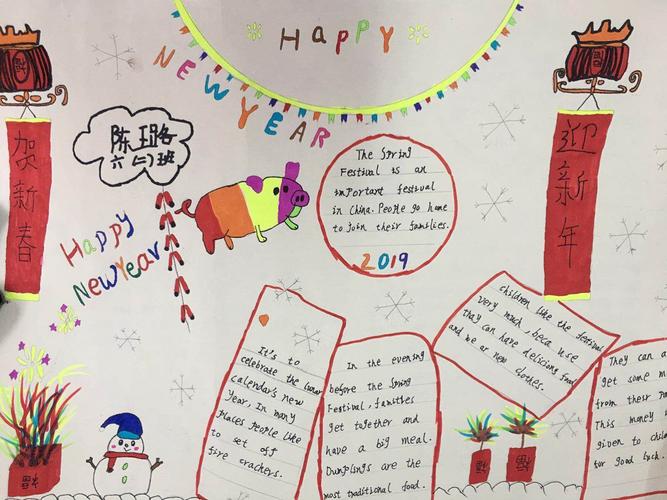 HAPPY
NEW YEAR
贺新春
迎新年
陈珺璐
六(二)班
Happy
New Year
The Spring
Festival is an
important festival
in China. People go home
to join their families.
2019
It's to
celebrate the lunar
calendar's new
Year, In many
places people like
to set off
fire crackers.
In the evening
before the Spring
Festival, families
get together and
have a big meal.
Dumplings are the
most traditional food.
children like the festival
very much, beca use
they can have delicious food
and we ar new clothes.
They can a
get some m
from their pa
This money
given to child
for good luck.
福
福
福